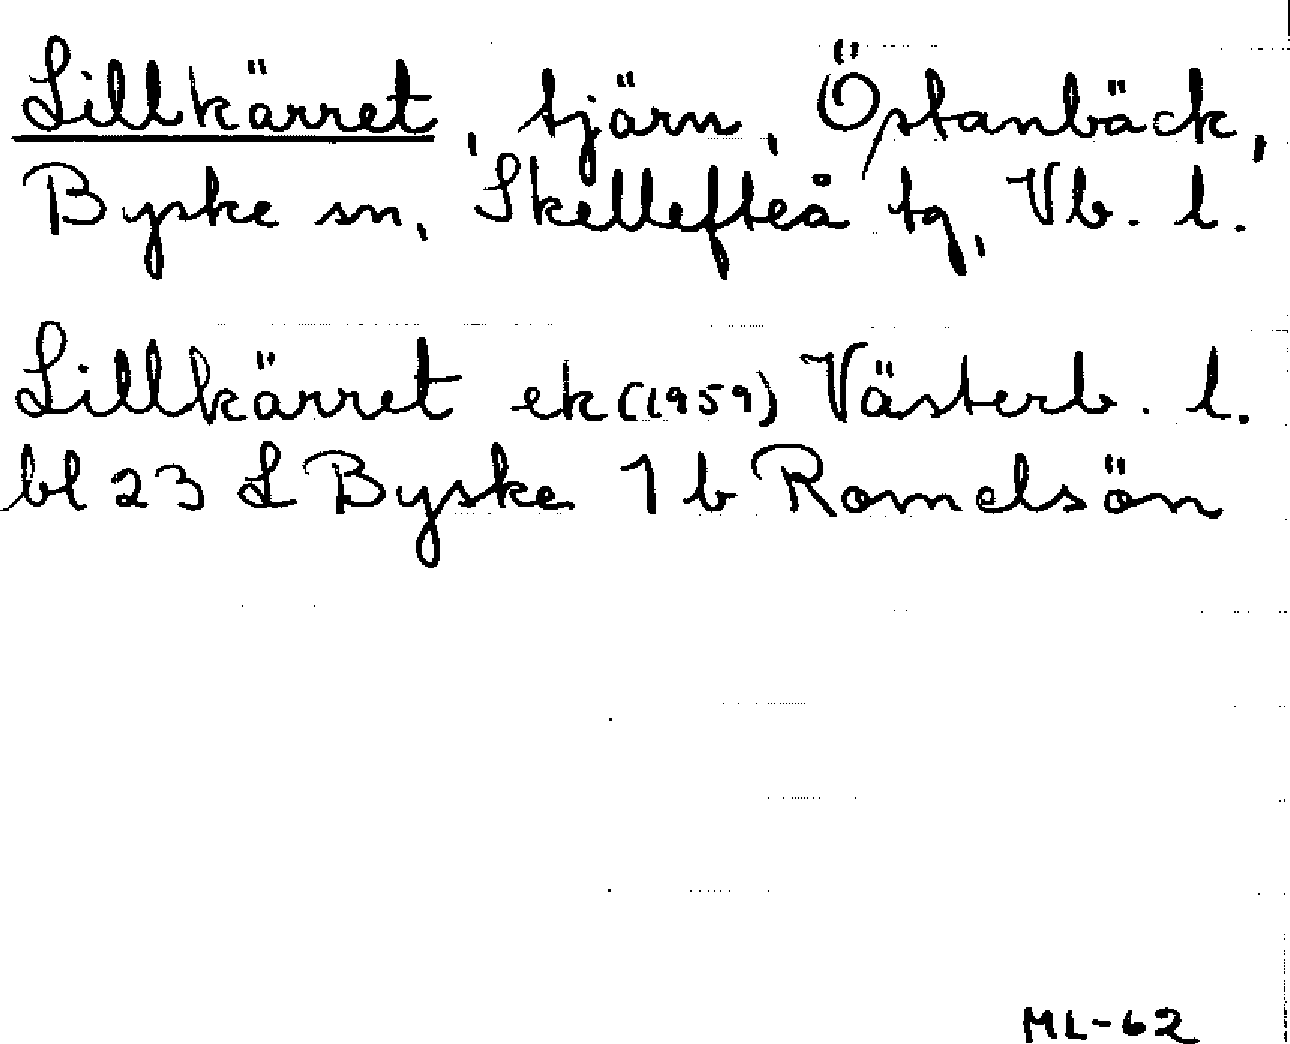 Lillkärret, tjärn, Östanbäck,
Byske sn, Skellefteå tg, Vb. l.
Lillkärret ek (1959) Västerb. l.
bl 23 L Byske 1 b Romelsön
ML-62